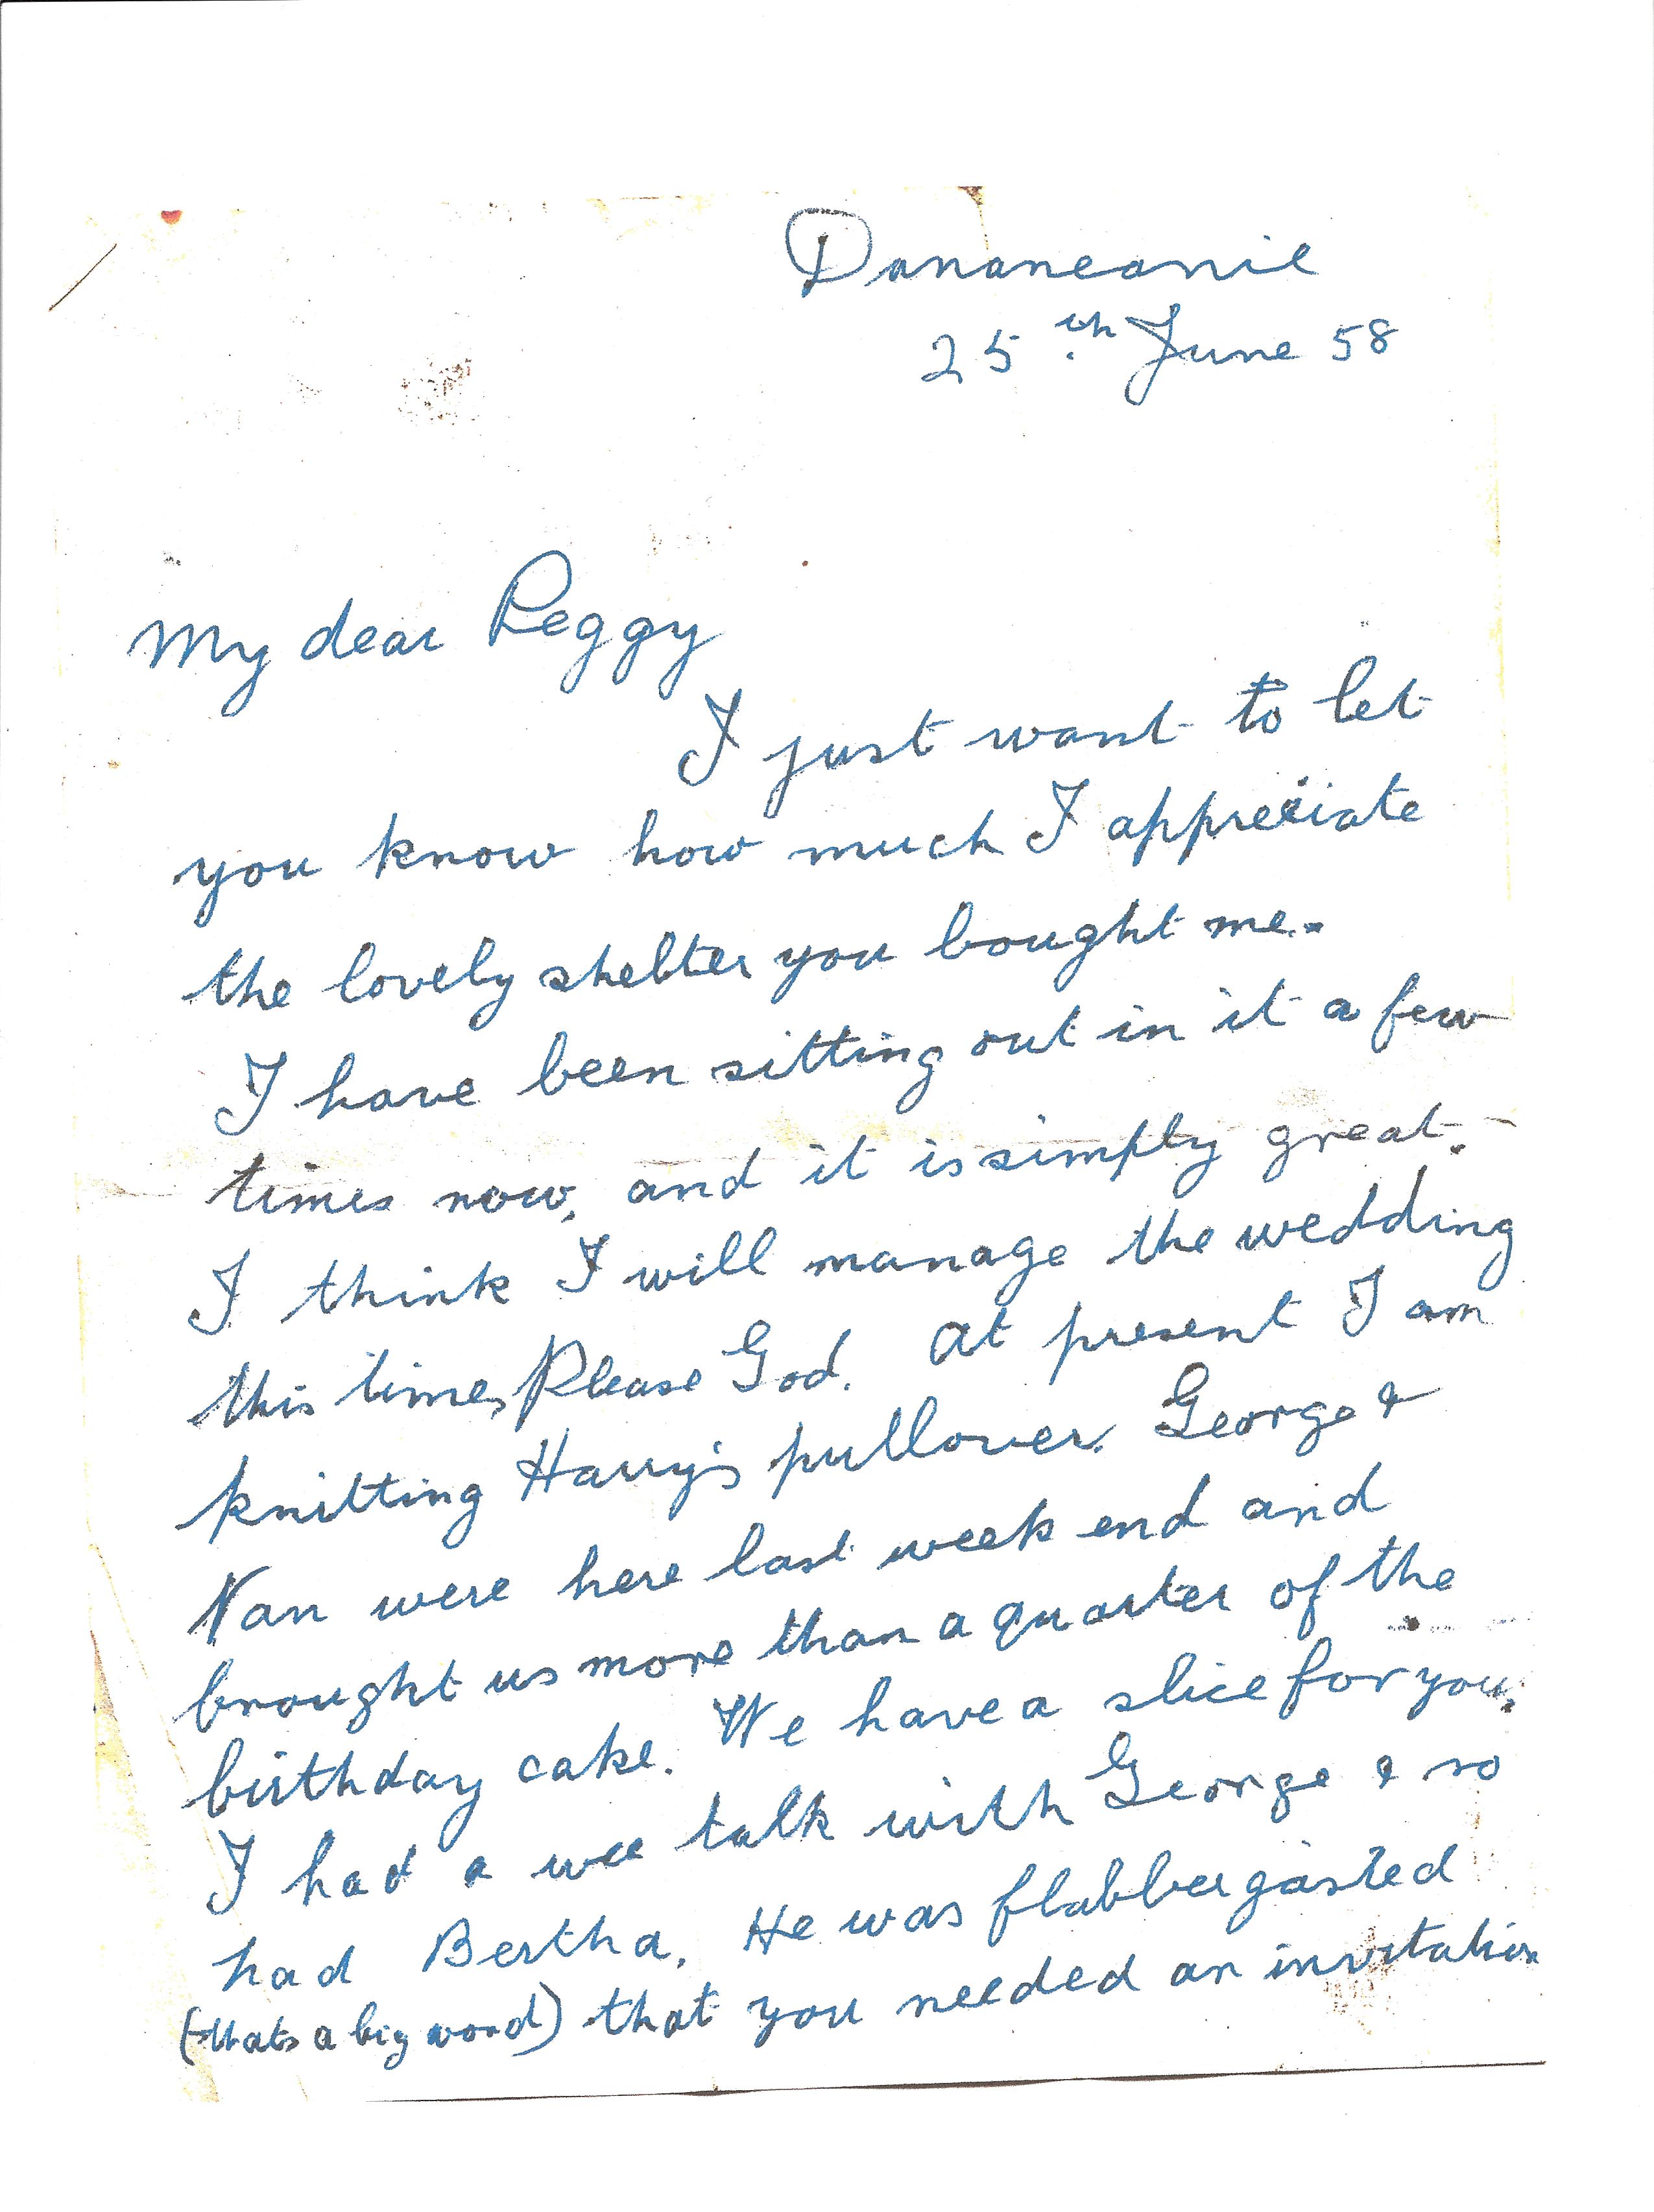 Dunaneanie
25th June 58
My dear Peggy
I just want to let
you know how much I appreciate
the lovely shelter you bought me.
I have been sitting out in it a few
times now, and it is simply great.
I think I will manage the wedding
this time, Please God. At present I am
knitting Harry's pullover. George &
Nan were here last week end and
brought us more than a quarter of the
birthday cake. We have a slice for you.
I had a wee talk with George & so
had Bertha. He was flabbergasted
(thats a big word) that you needed an invitation